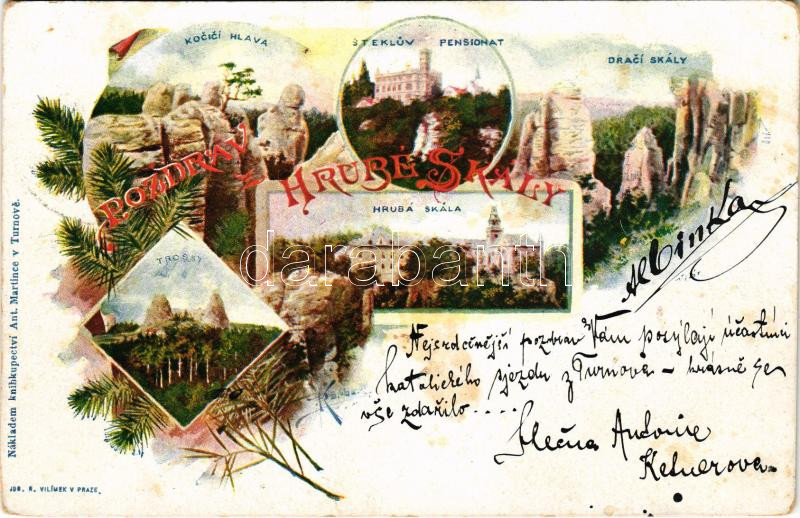 KOČIČÍ HLAVA
ŠTEKLŮV PENSIONAT
DRAČÍ SKÁLY
POZDRAV Z HRUBÉ SKÁLY
HRUBÁ SKÁLA
TROSKY
darabanth
Albinka
Nejsrdečnější pozdrav Vám posýlají účastníci
katolického sjezdu z Turnova – krásně se
vše zdařilo....
Slečna Antonie
Nákladem knihkupectví Ant. Martince v Turnově.
JOS. R. VILÍMEK V PRAZE.